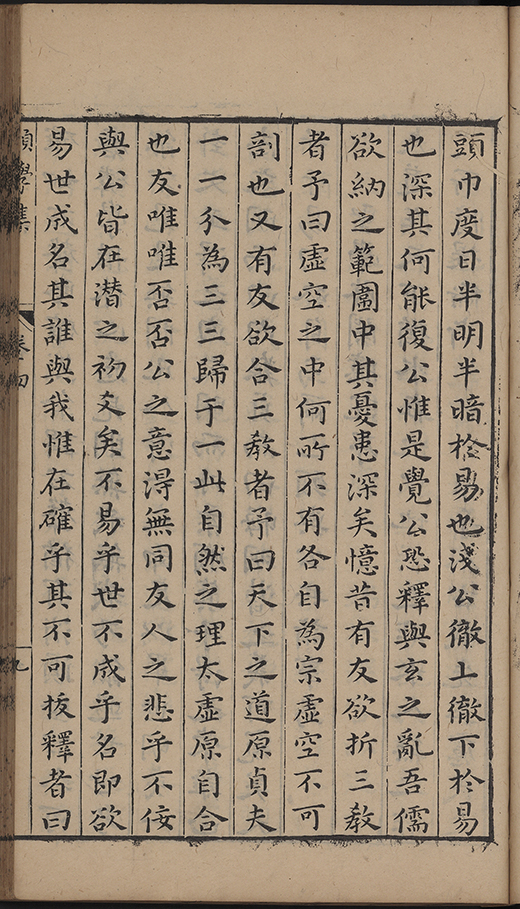 頭巾度日半明半暗於易也淺公徹上徹下於易
也深其何能復公惟是覺公恐釋與玄之亂吾儒
欲納之範圍中其憂患深矣憶昔有友欲折三教
者予曰虛空之中何所不有各自為宗虛空不可
剖也又有友欲合三教者予曰天下之道原貞夫
一一分為三三歸于一此自然之理太虛原自合
也友唯唯否否公之意得無同友人之悲乎不佞
與公皆在潛之初爻矣不易乎世不成乎名即欲
易世成名其誰與我惟在確乎其不可拔釋者曰
學集
卷四
九